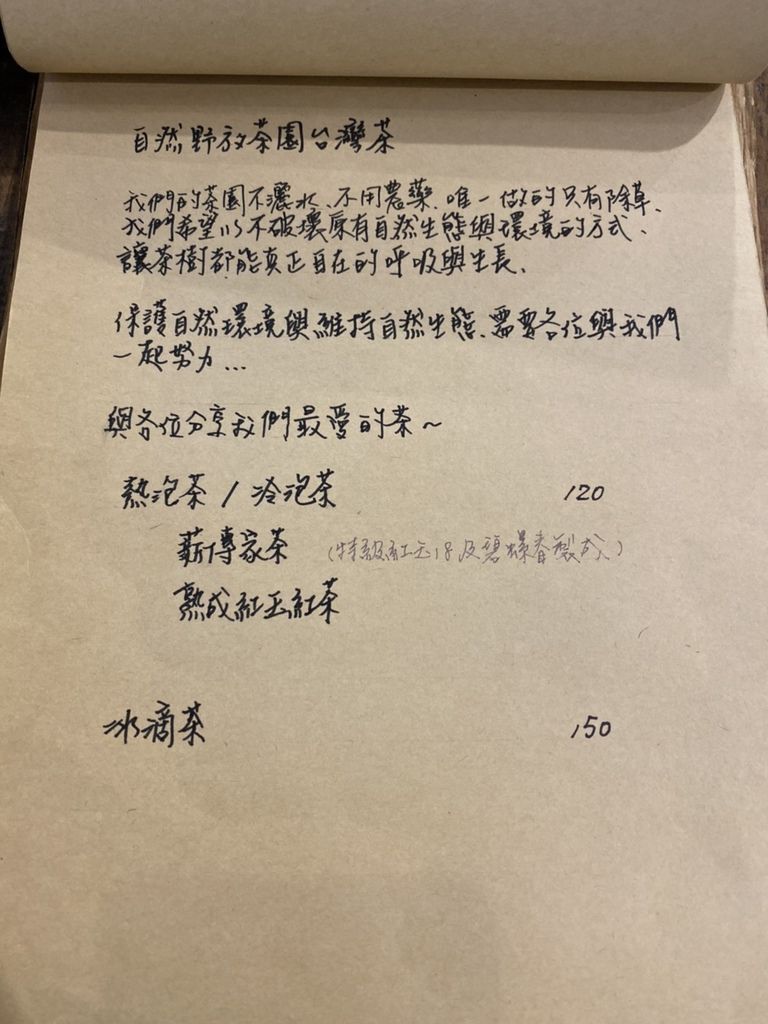 自然野放茶園台灣茶
我們的茶園不灑水、不用農藥、唯一做的只有除草、
我們希望以不破壞原有自然生態與環境的方式、
讓茶樹都能真正自在的呼吸與生長、
保護自然環境與維持自然生態、需要各位與我們
一起努力...
與各位分享我們最愛的茶~
熱泡茶 / 冷泡茶 120
薪傳家茶 (特級紅玉18及碧螺春製成)
熟成紅玉紅茶
冰滴茶 150